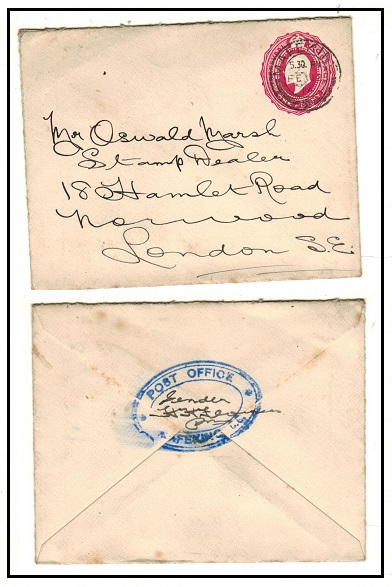 5.30
FE
Mr Oswald Marsh
Stamp Dealer
18 Hamlet Road
Norwood
London S.E.
POST OFFICE
Sender
MAFEKING